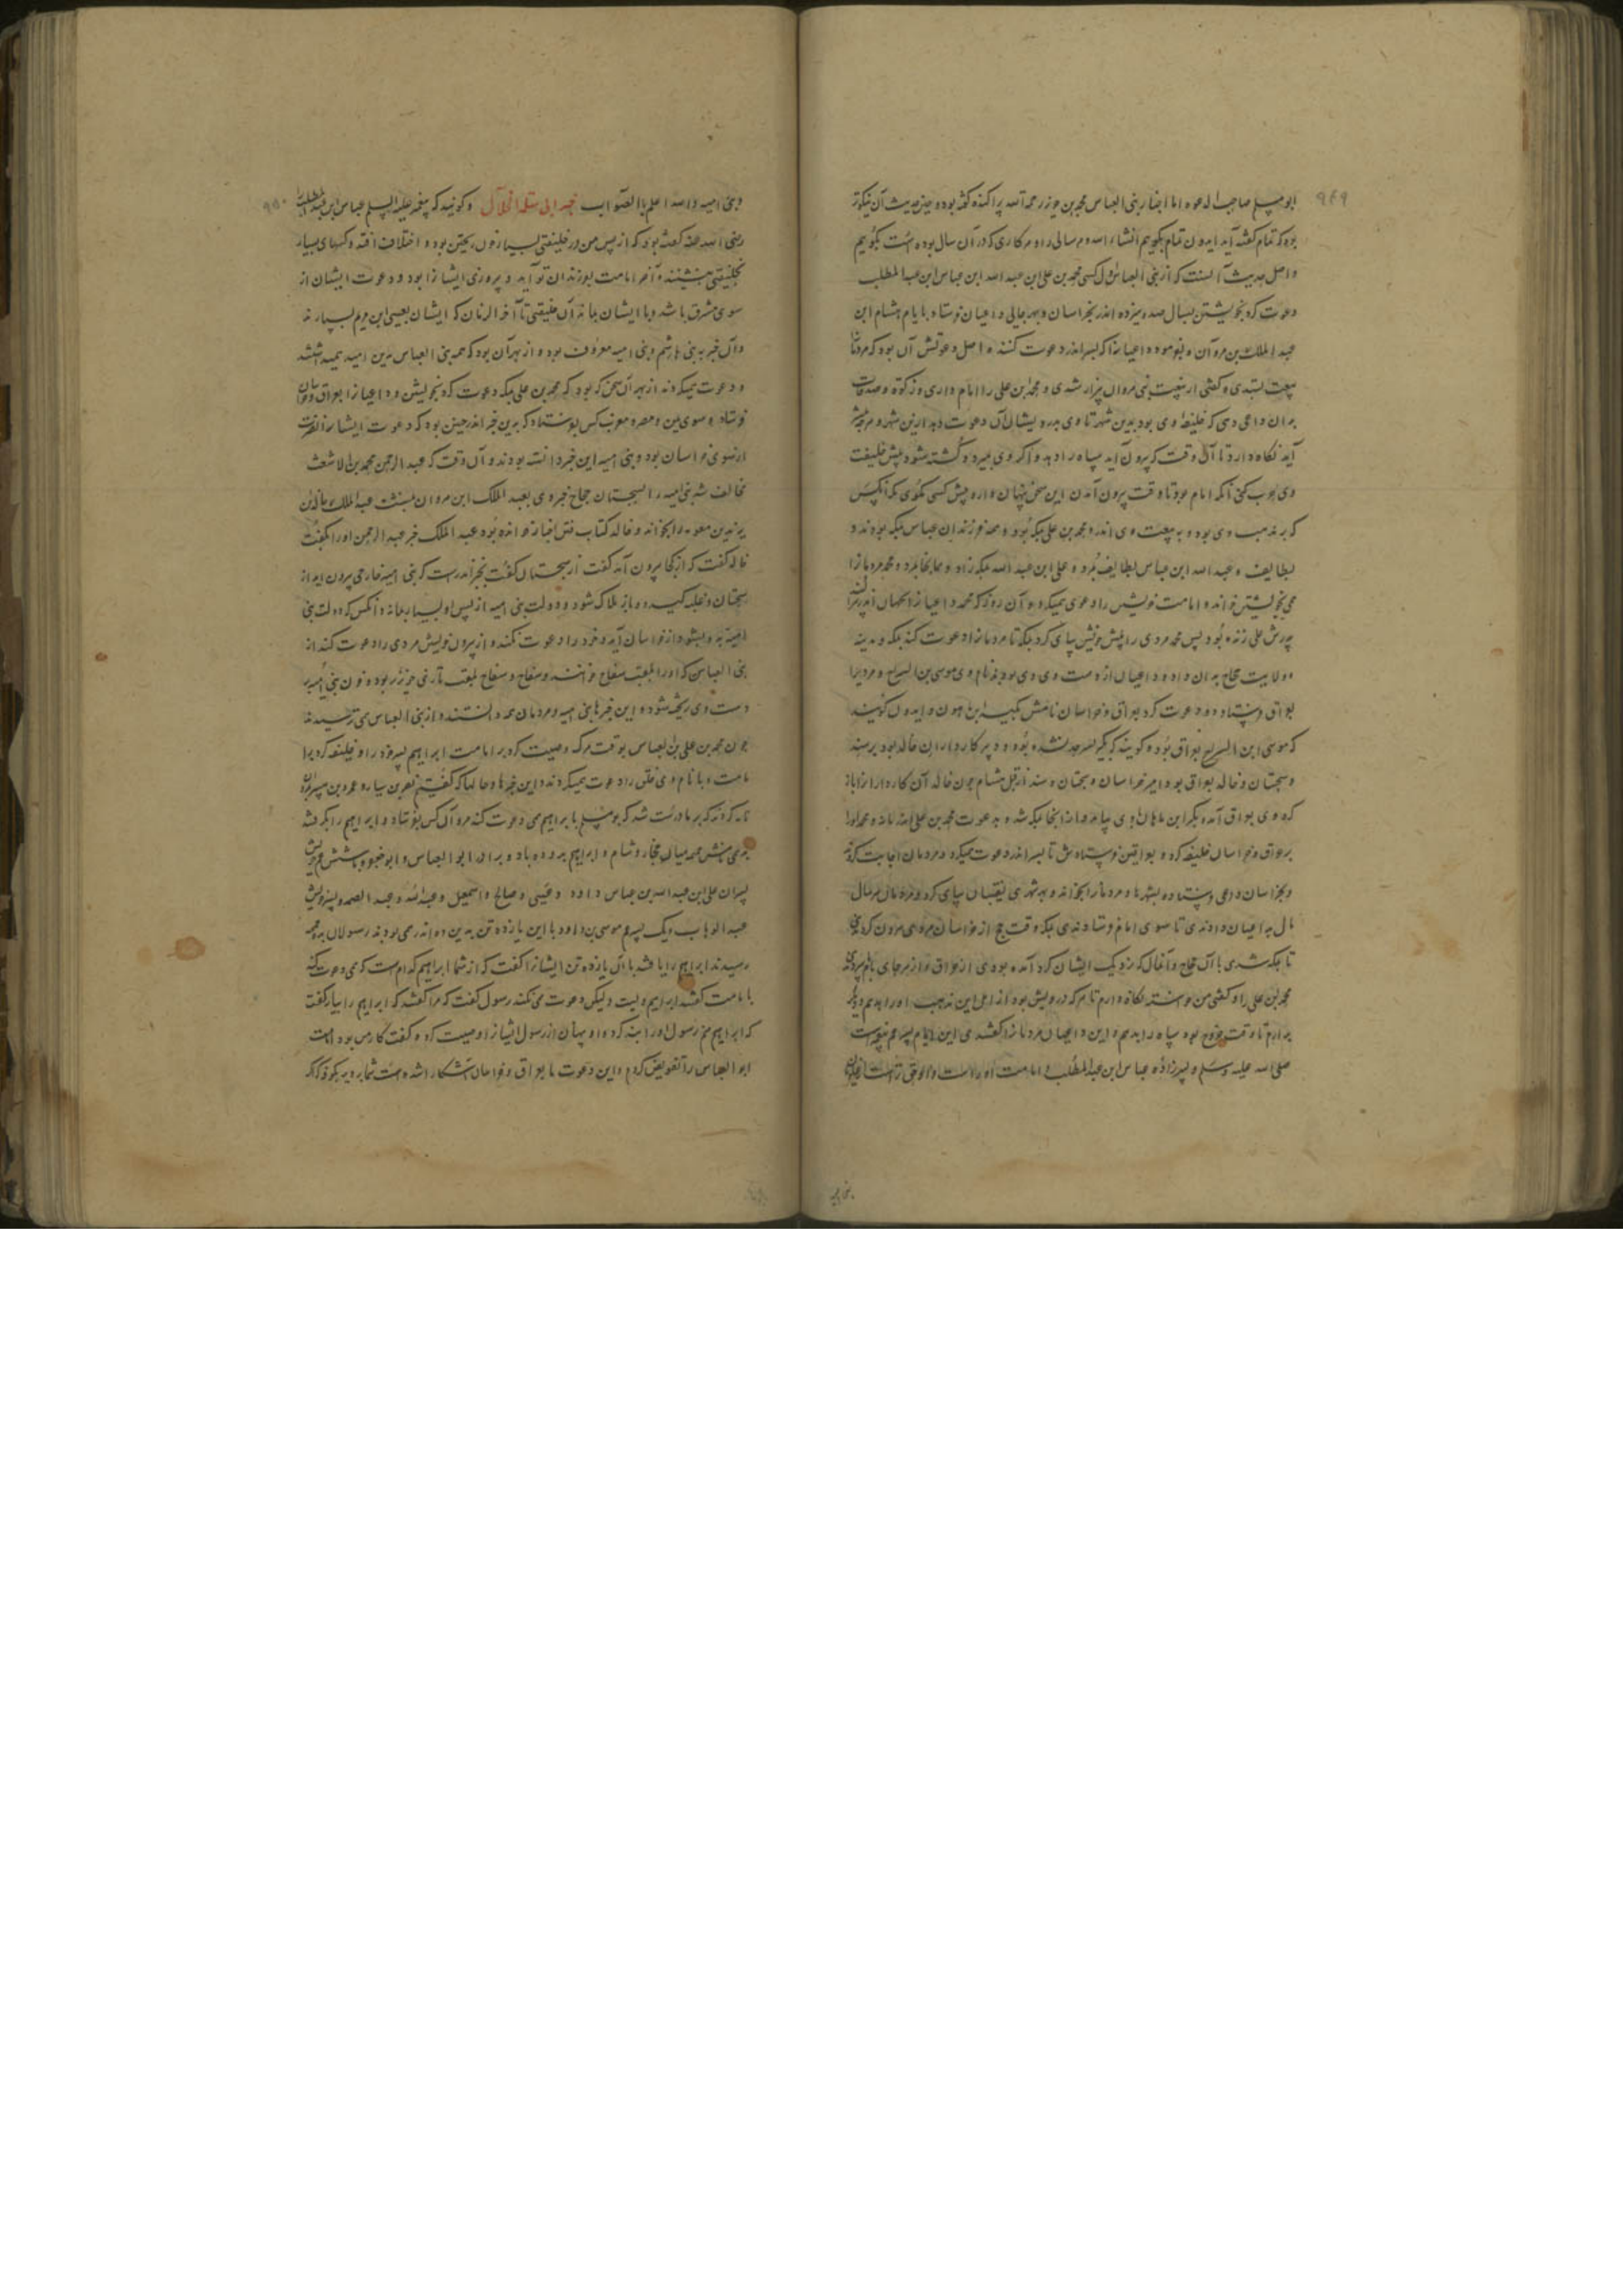 ۹۴۹
ابومسلم صاحب الدعوه اما اخبار بنی العباس محمد بن جریر رحمه الله پراکنده گفته بود و چیز حدیث آن نیکوتر
بود که تمام گفته آید ایدون تمام بگوییم انشاء الله و هر سالی را و هر کاری که در آن سال بوده است بگوییم
و اصل حدیث آنست که از بنی العباس اول کسی محمد بن علی ابن عبد الله ابن عباس ابن عبد المطلب
دعوت کرد بخویشتن بسال صد و سیزده اندر بخراسان و بهر جایی داعیان فرستاد بایام هشام ابن
عبد الملک بن مروان و بفرمود داعیانرا که بسر اندر دعوت کنند و اصل دعوتش آن بود که مردمانرا
بیعت ستدی و گفتی از بیعت بنی مروان بیزار شدی و محمد ابن علی را امام داری و زکوة و صدقات
بدان داعی دهی که خلیفه وی بود بدین شهر تا وی بدرویشان آن دعوت دهد ازین شهر و هر چه
آید نگاه دارد تا آن وقت که بیرون آید سپاه را دهد و اگر وی بمیرد و کشته شود پیش خلیفت
وی بود تا وقت بیرون آمدن این سخن پنهان دارد و پیش کسی نگوی مگر آنکس
که بر مذهب وی بود و به بیعت وی اندر و محمد بن علی بمکه بود و همه فرزندان عباس بمکه بودند و
بطایف و عبد الله ابن عباس بطایف بمرد و علی ابن عبد الله بمکه زاد و همانجا بمرد و محمد مردمانرا
می بخویشتن خواند و امامت خویش را دعوی میکرد و آن روز که محمد داعیانرا بجهان اندر
پدرش علی زنده بود پس محمد مردی را پیش خویش بپای کرد بمکه تا مردمانرا دعوت کند بمکه و مدینه
و ولایت حجاج بدان داد و داعیان از دست وی وی بودند نام وی موسی بن السراج و مردیرا
بعراق فرستاد و دعوت کرد بعراق و خراسان نامش بکیر ابن ماهون و ایدون گویند
که موسی ابن السراج بعراق بود و گویند که بکیر بود و دبیر کارداران خالد بود بر سند
و سجستان و خالد بعراق بود امیر خراسان و سجستان و سند از قبل هشام چون خالد آن کاردارانرا باز
کرد وی بعراق آمد بکیر ابن ماهان وی بیامد و از آنجا بمکه شد و بدعوت محمد بن علی اندر آمد و محمد او را
بر عراق و خراسان خلیفه کرد و بعراقین فرستادش تا بسر اندر دعوت میکرد و مردمان اجابت کردند
و بخراسان داعی فرستاد و بشهرها و مردمانرا بخواند و بهر شهری نقیبان بپای کرد و مردمان هر سال
مال بداعیان دادندی تا سوی امام فرستادندی بمکه وقت حج از خراسان
تا بمکه شدی با آن حجاج و آن مال که نزدیک ایشان گرد آمده بودی از عراق و از هر جای
محمد بن علی را و گفتی من خواسته نگاه دارم تا هر که درویش بود از اهل این مذهب او را بدهم و دیگر
بدارم تا وقت خروج بود سپاه را بدهم و این داعیان مردمانرا گفتندی این امام پسر عم پیغمبر است
صلی الله علیه و سلم و پسرزاده عباس ابن عبد المطلب و امامت او راست
۹۵۰
و بنی امیه و الله اعلم بالصواب خبر ابی سلمه الخلال و گویند که پیغمبر علیه السلم عباس ابن عبد المطلب
رضی الله عنه گفته بود که از پس من در خلیفتی بسیار خون ریختن بود و اختلاف افتد و کسهای بسیار
بخلیفتی بنشینند و آخر امامت بفرزندان تو آید و پیروزی ایشانرا بود و دعوت ایشان از
سوی مشرق باشد و با ایشان بماند آن خلیفتی تا آخر الزمان که ایشان بعیسی ابن مریم بسپارند
و آن خبر به بنی هاشم و بنی امیه معروف بود و از بهر آن بود که همه بنی العباس
و دعوت میکردند از بهر آن سخن که بود که محمد بن علی بمکه دعوت کرد بخویشتن و داعیانرا بعراق و خراسان
فرستاد و سوی یمن و مصر و مغرب کس نفرستاد که بدین خبر اندر چنین بود که دعوت ایشانرا نصرت
از سوی خراسان بود و بنی امیه این خبر دانسته بودند و آن وقت که عبد الرحمن محمد بن الاشعث
مخالف شد بنی امیه را بسجستان حجاج خبر وی بعبد الملک ابن مروان بنبشت عبد الملک خالد بن
یزید بن معویه را بخواند و خالد کتاب فتن اخبار خوانده بود عبد الملک خبر عبد الرحمن او را بگفت
خالد گفت که از کجا بیرون آمد گفت از سجستان گفت بخبر اندرست که بنی امیه خارجی بیرون آید از
سجستان و غلبه گیرد و باز هلاک شود و دولت بنی امیه از پس او بسیار بماند و آنکس که دولت بنی
امیه بدو بشود از خراسان آید و خود را دعوت نکند و از بیرون خویش مردی را دعوت کند از
بنی العباس که او را بلقب سفاح خوانند و سفاح و سفاح بلقب تازی خونریز بود و خون بنی امیه بر
دست وی ریخته شود و این خبرها بنی امیه و مردمان همه دانستند و از بنی العباس می ترسیدند
چون محمد بن علی بن العباس بوقت مرگ وصیت کرد بر امامت ابراهیم پسر خود را و خلیفه کرد بر
امامت و با نام وی خلق را دعوت میکردند و این خبرها و حالها که گفتیم نصر بن سیار و مروان بن
نامه کردند که بر ما درست شد که بومسلم با ابراهیم می دعوت کند مروان کس بفرستاد و ابراهیم را بگرفتند
میان حجاز و شام و ابراهیم بدو ده باد و برادر ابو العباس و ابو جعفر و شش عم خویش
پسران علی ابن عبد الله بن عباس داود و عیسی و صالح و اسمعیل و عبد الله و عبد الصمد و پسر خویش
عبد الوهاب و یک پسر عم موسی بن داود با این یازده تن بدین ده اندر همی بودند رسولان بدو
رسیدند ابراهیم را یافتند با آن یازده تن ایشانرا گفت که از شما ابراهیم کدام است که می دعوت کند
بامامت گفتند ابراهیم ولیت ولیکن دعوت می نکند رسول گفت که مرا گفتند که ابراهیم را بیار گفت
که ابراهیم منم رسول او را بند کرد و او پنهان از رسول ایشانرا وصیت کرد و گفت کار من بود امامت
ابو العباس را تفویض کردم و این دعوت ما بعراق و خراسان آشکارا شده است شما بروید بکوفه